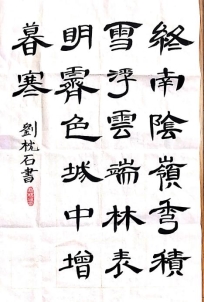 終南陰嶺秀積
雪浮雲端林表
明霽色城中增
暮寒
劉枕石書